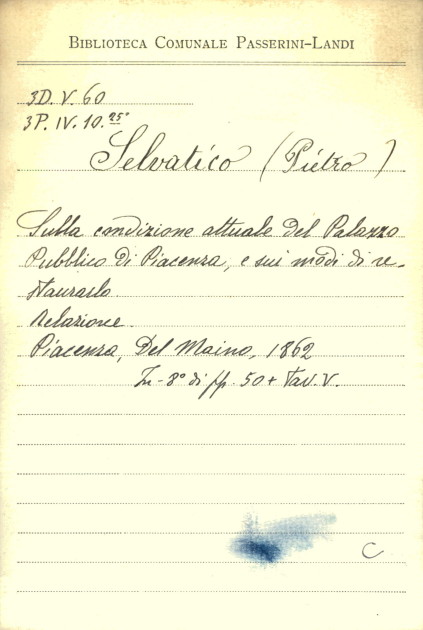 BIBLIOTECA COMUNALE PASSERINI-LANDI
3D. V. 60
3P. IV. 10. 25°
Selvatico (Pietro)
Sulla condizione attuale del Palazzo
Pubblico di Piacenza, e sui modi di re-
staurarlo.
Relazione.
Piacenza, Del Maino, 1862
In-8° di pp. 50 + Tav. V.
C